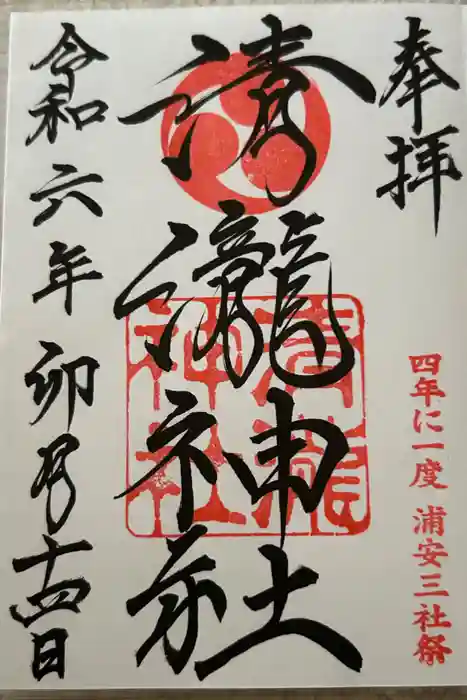 奉拝
四年に一度 浦安三社祭
清瀧神社
清瀧
神社
令和六年 卯月十四日